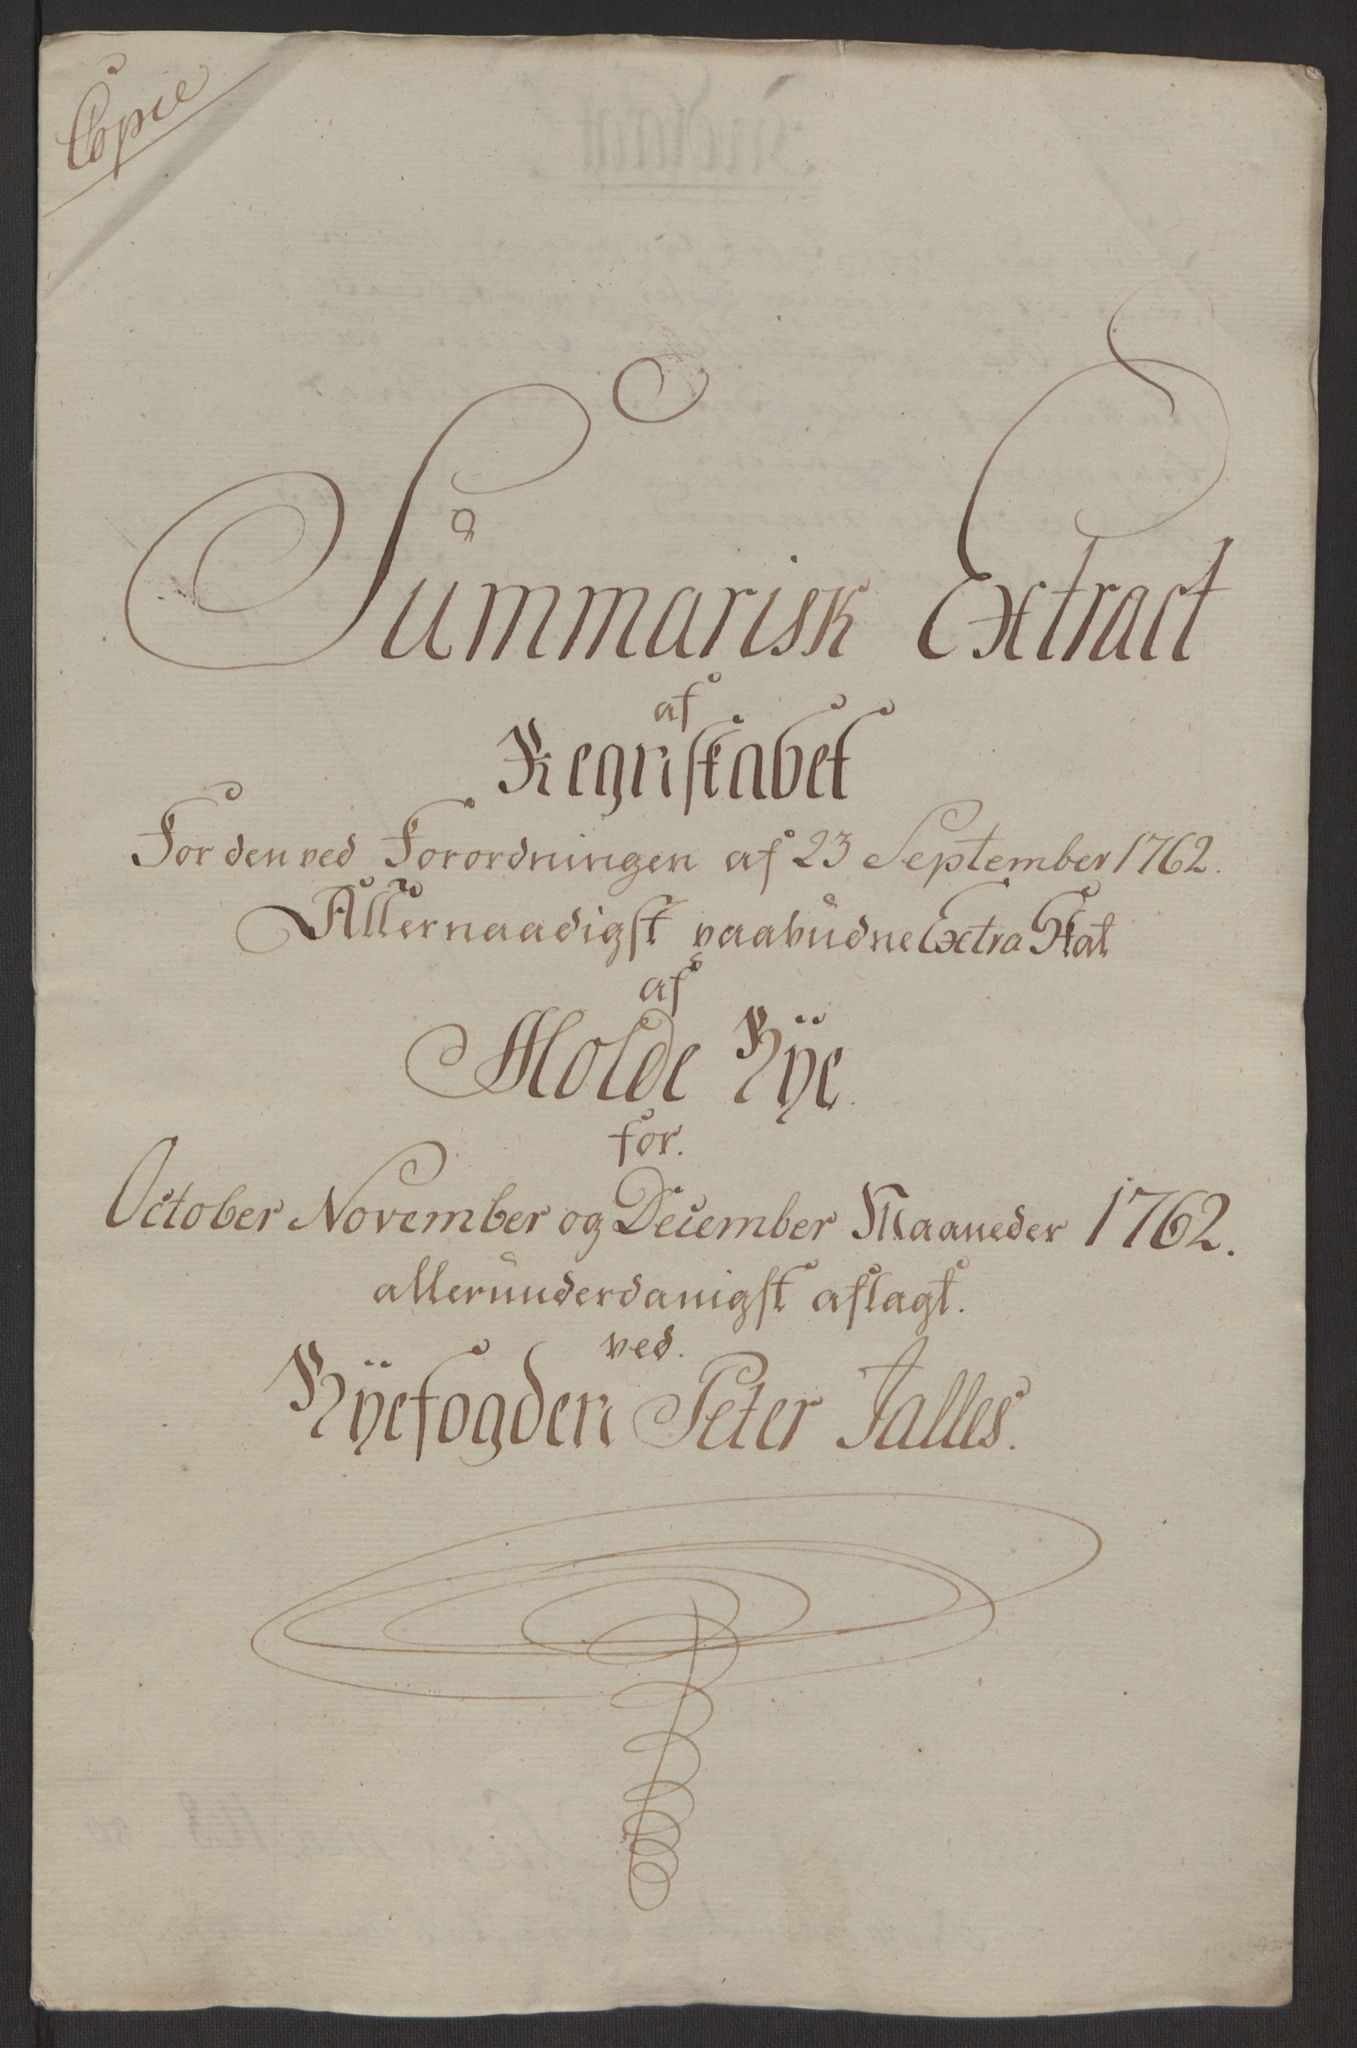 Copie
Summarisk Extract
af
Regnskabet
For den ved Forordningen af 23 September 1762.
Allernaadigst paabudne Extra Skat
af
Molde Bÿe.
for.
October November og December Maaneder 1762.
allerunderdanigst aflagt.
ved.
Bÿefogden Peter Dalles.